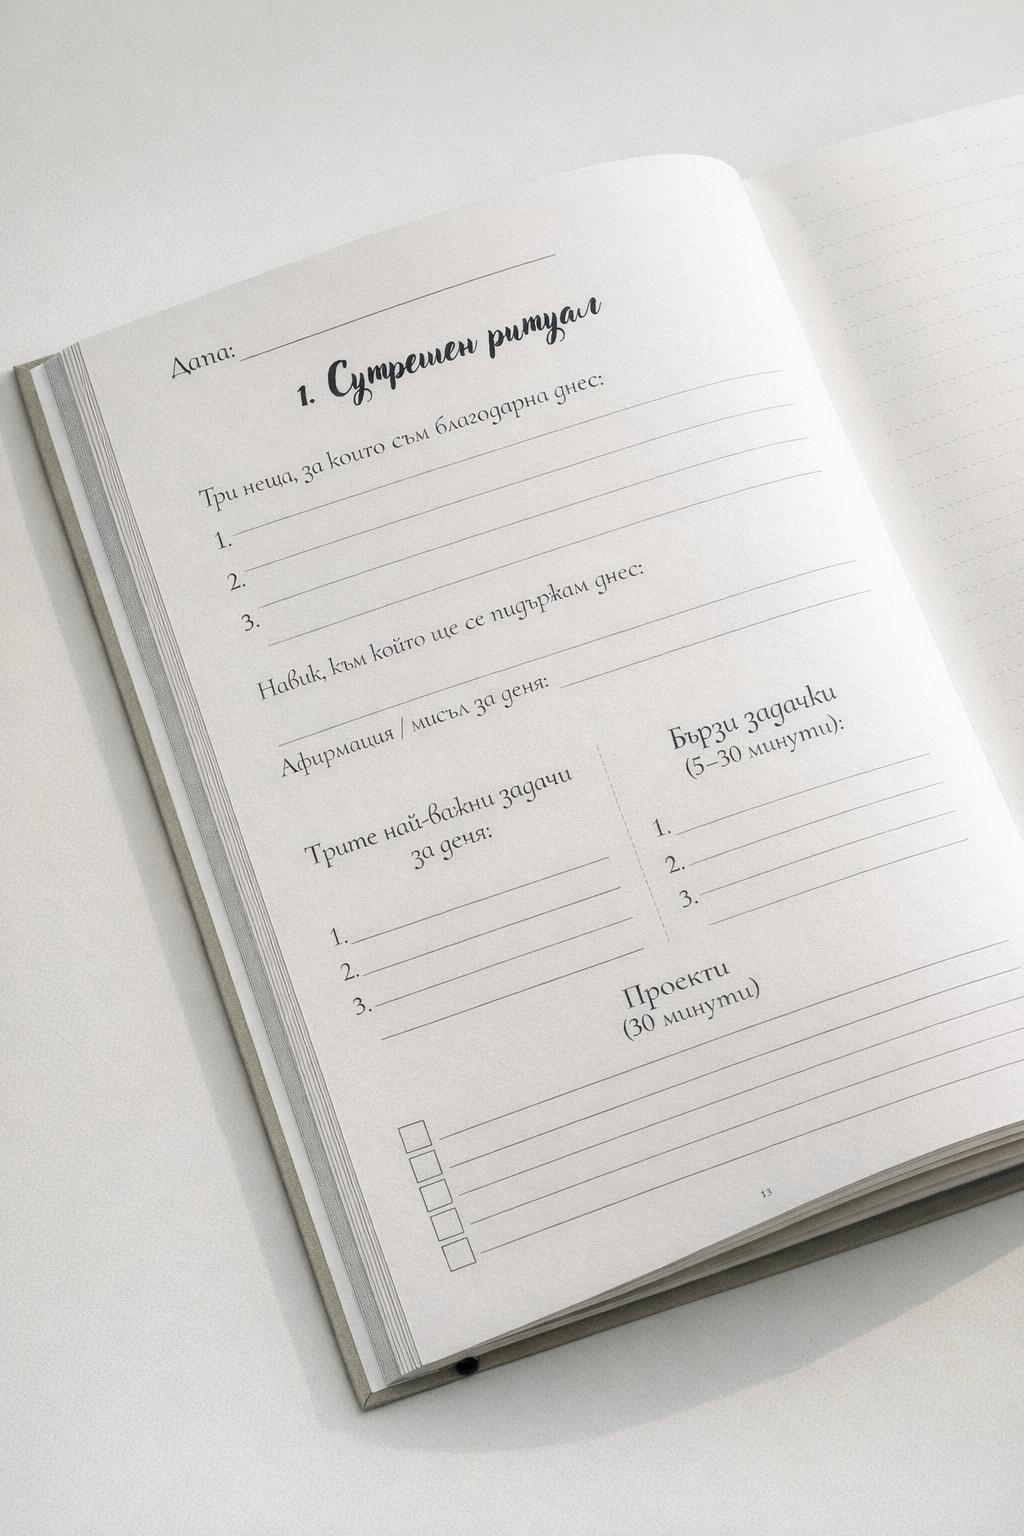 Дапа:
1. Сутрешен ритуал
Три неща, за които съм благодарна днес:
1.
2.
3.
Навик, към който ще се пидържам днес:
Афирмация / мисъл за деня:
Трите най-важни задачи
за деня:
1.
2.
3.
Бързи задачки
(5–30 минути):
1.
2.
3.
Проекти
(30 минути)
13